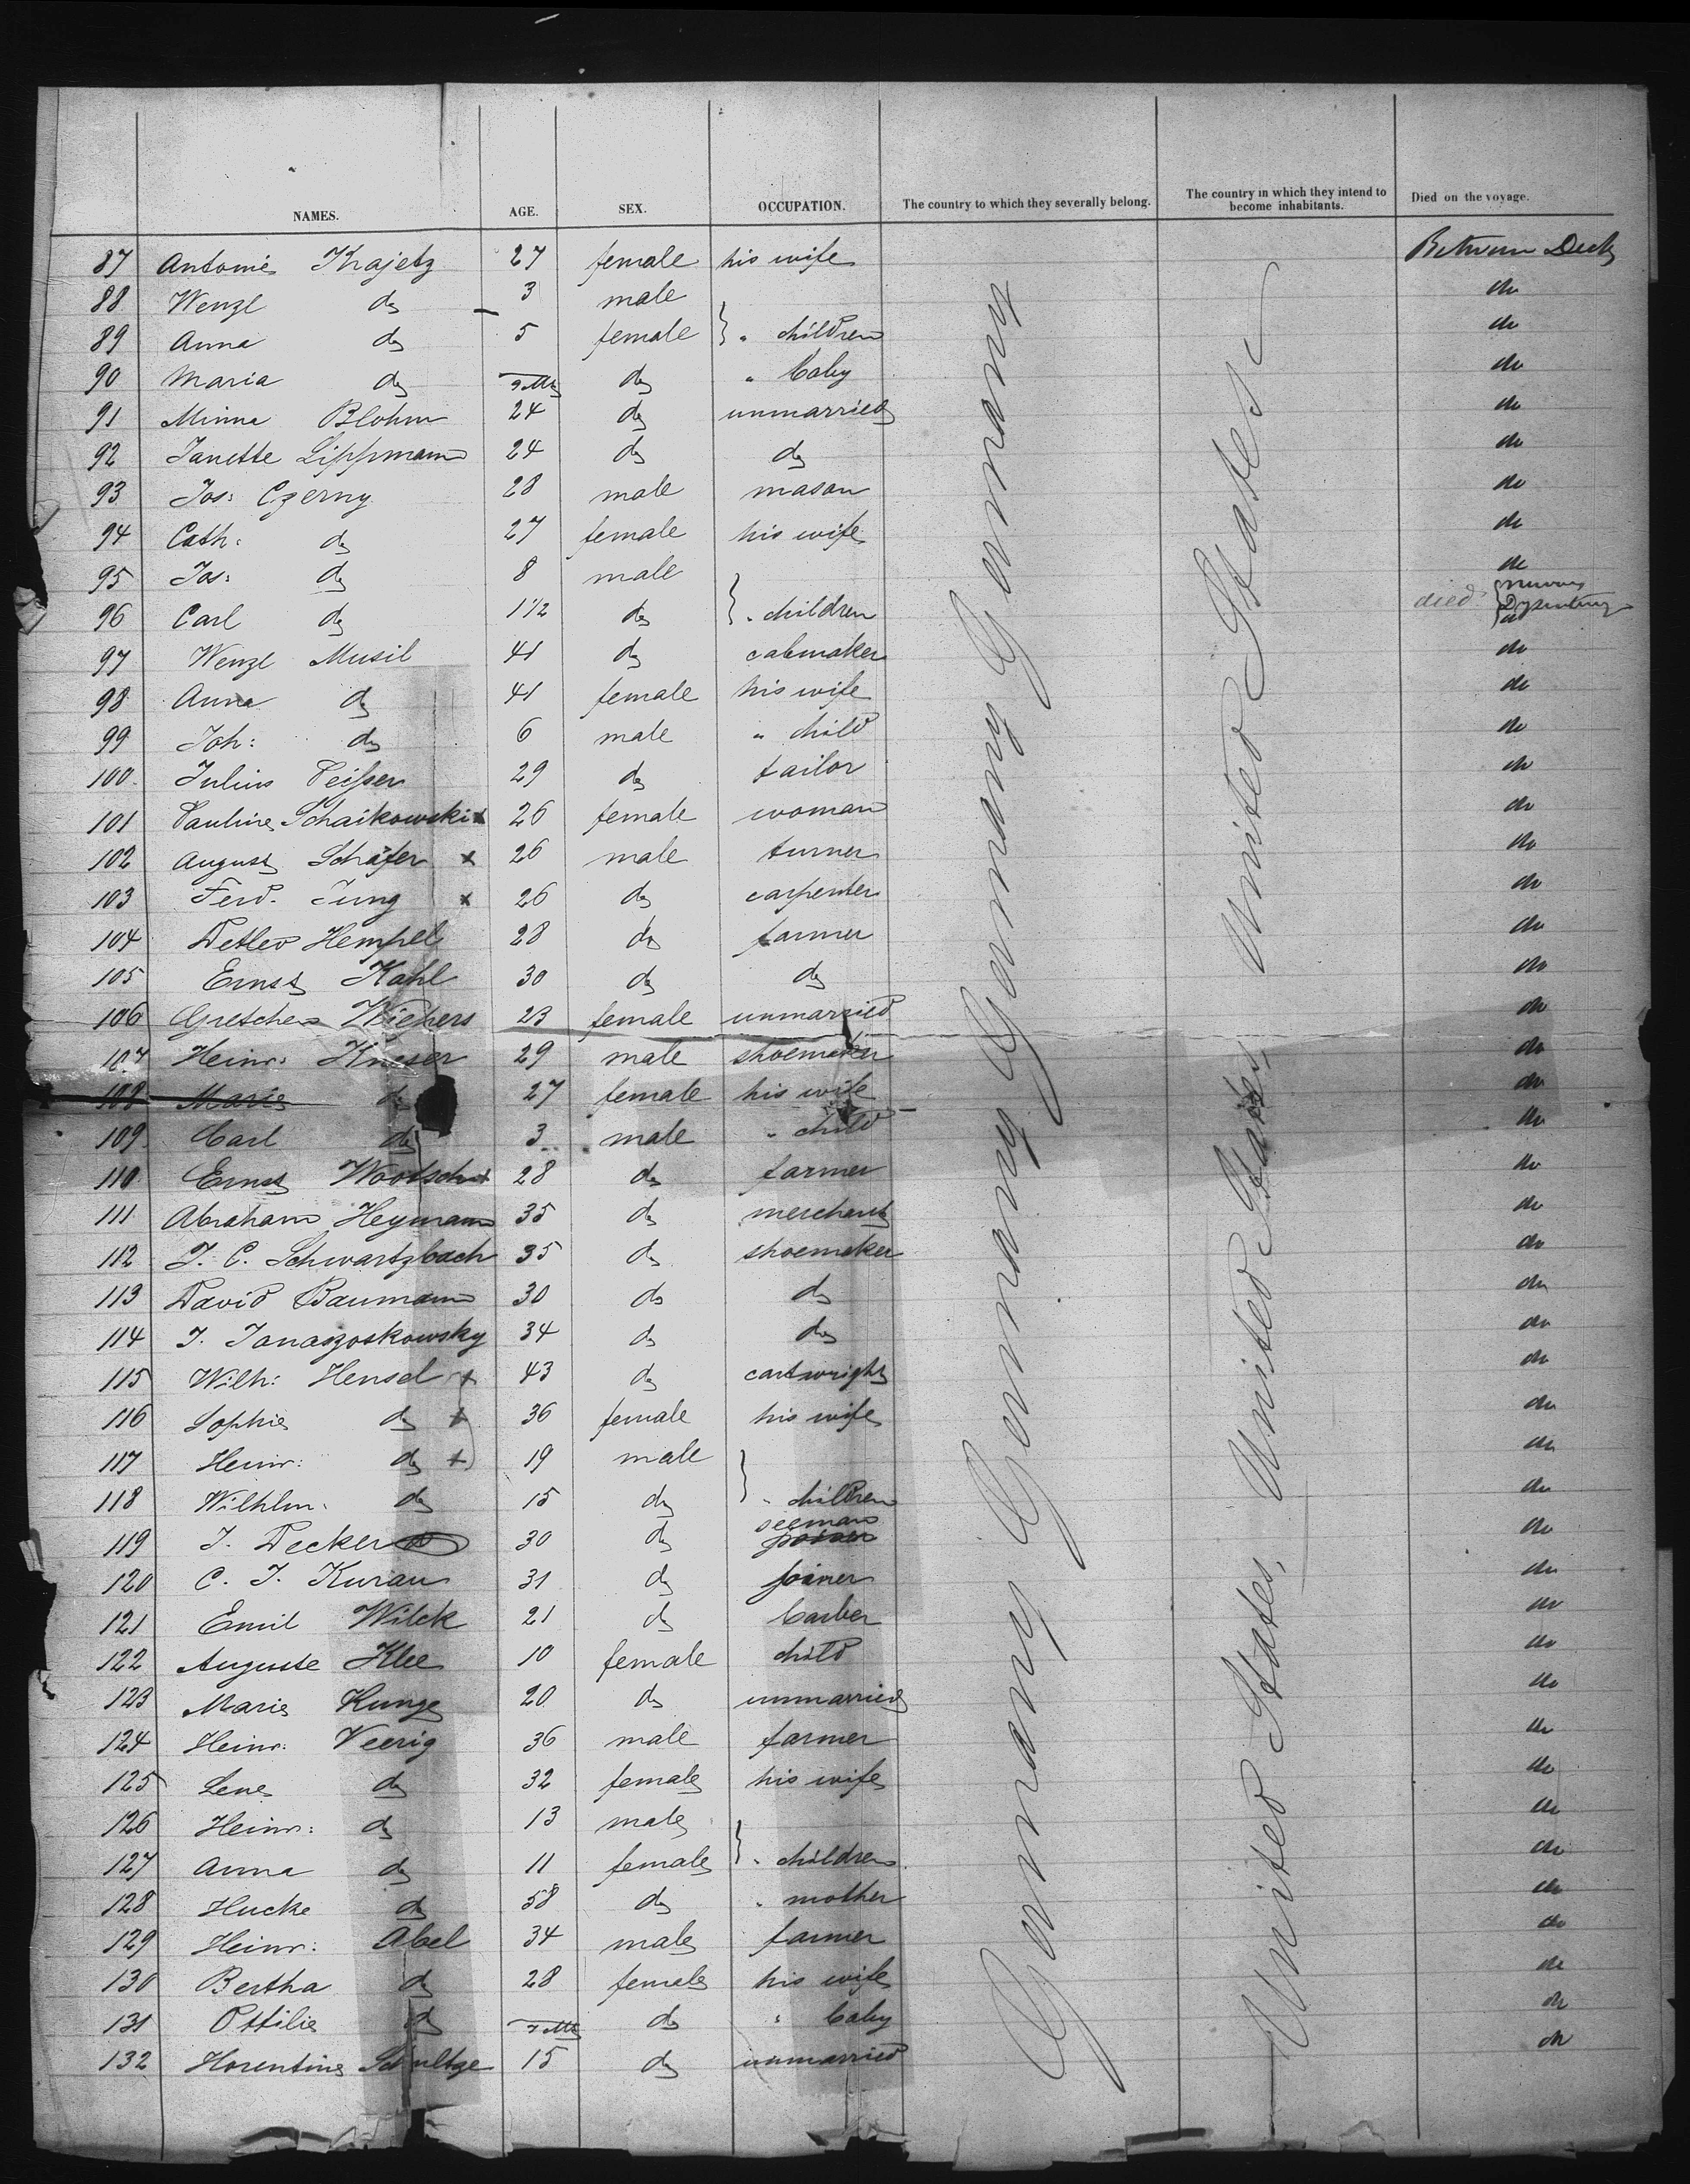 NAMES. AGE. SEX. OCCUPATION. The country to which they severally belong. The country in which they intend to become inhabitants. Died on the voyage.
87 Antonie Krajetz 27 female his wife Between Deck
88 Wenzl do 3 male do
89 Anna do 5 female } " children do
90 Maria do 9 Mts do " baby do
91 Minna Blohm 24 do unmarried do
92 Janette Lippmann 24 do do do
93 Jos: Czerny 28 male mason do
94 Cath: do 27 female his wife do
95 Jos: do 8 male do
96 Carl do 1 1/2 do } " children died Dysentery do
97 Wenzl Musil 41 do cabmaker do
98 Anna do 41 female his wife do
99 Joh: do 6 male " child do
100 Julius Peisser 29 do tailor do
101 Pauline Schaikowski x 26 female woman do
102 August Schäfer x 26 male turner do
103 Ferd. Jung x 26 do carpenter do
104 Detlev Hempel 28 do farmer do
105 Ernst Kahl 30 do do do
106 Gretchen Wichers 23 female unmarried do
107 Heinr: Kneser 29 male shoemaker do
108 Marie do 27 female his wife do
109 Carl do 3 male " child do
110 Ernst 28 do farmer do
111 Abraham Heymann 35 do merchant do
112 J. C. Schwartzbach 35 do shoemaker do
113 David Baumann 30 do do do
114 J. Janaszoskowsky 34 do do do
115 Wilh: Hensel x 43 do cartwright do
116 Sophie do x 36 female his wife do
117 Heinr: do x 19 male do
118 Wilhlm. do 15 do } " children do
119 J. Decker 30 do seeman do
120 C. J. Kurau 31 do joiner do
121 Emil Wilck 21 do barber do
122 Auguste Klee 10 female child do
123 Marie Kunze 20 do unmarried do
124 Heinr: Veerig 36 male farmer do
125 Lene do 32 female his wife do
126 Heinr: do 13 male do
127 Anna do 11 female } " children do
128 Hucke do 58 do " mother do
129 Heinr: Abel 34 male farmer do
130 Bertha do 28 female his wife do
131 Ottilie do Mts do " baby do
132 Florentine Schultze 15 do unmarried do
Germany Germany Germany Germany Germany
United States United States, United States, United States